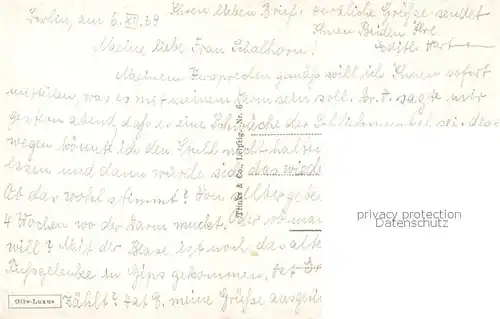 Berlin, am 6. XII. 39
Ihren lieben Brief. Herzliche Grüße sendet
Ihnen Beiden Ihre
Edith Hart
Meine liebe Frau Schalhorn!
Meinem Versprechen gemäß will ich Ihnen sofort
mitteilen, was es mit meinem Darm sein soll. Dr. A. sagte mir
gestern abend, daß es eine Schwäche der sei, des-
wegen könnte ich den Stuhl nicht halten
lassen und dann würde sich das wieder
Ob das wohl stimmt? Von
4 Wochen wo der Darm muckt. man
will? Mit der Blase ist noch das alte
Fußgelenke in Gips gekommen. Hat
zählt? Hat B. meine Grüße ausgerich
Trinks & Co., Leipzig. Nr.
Oliv-Luxus
privacy protection
www.oldthing.com